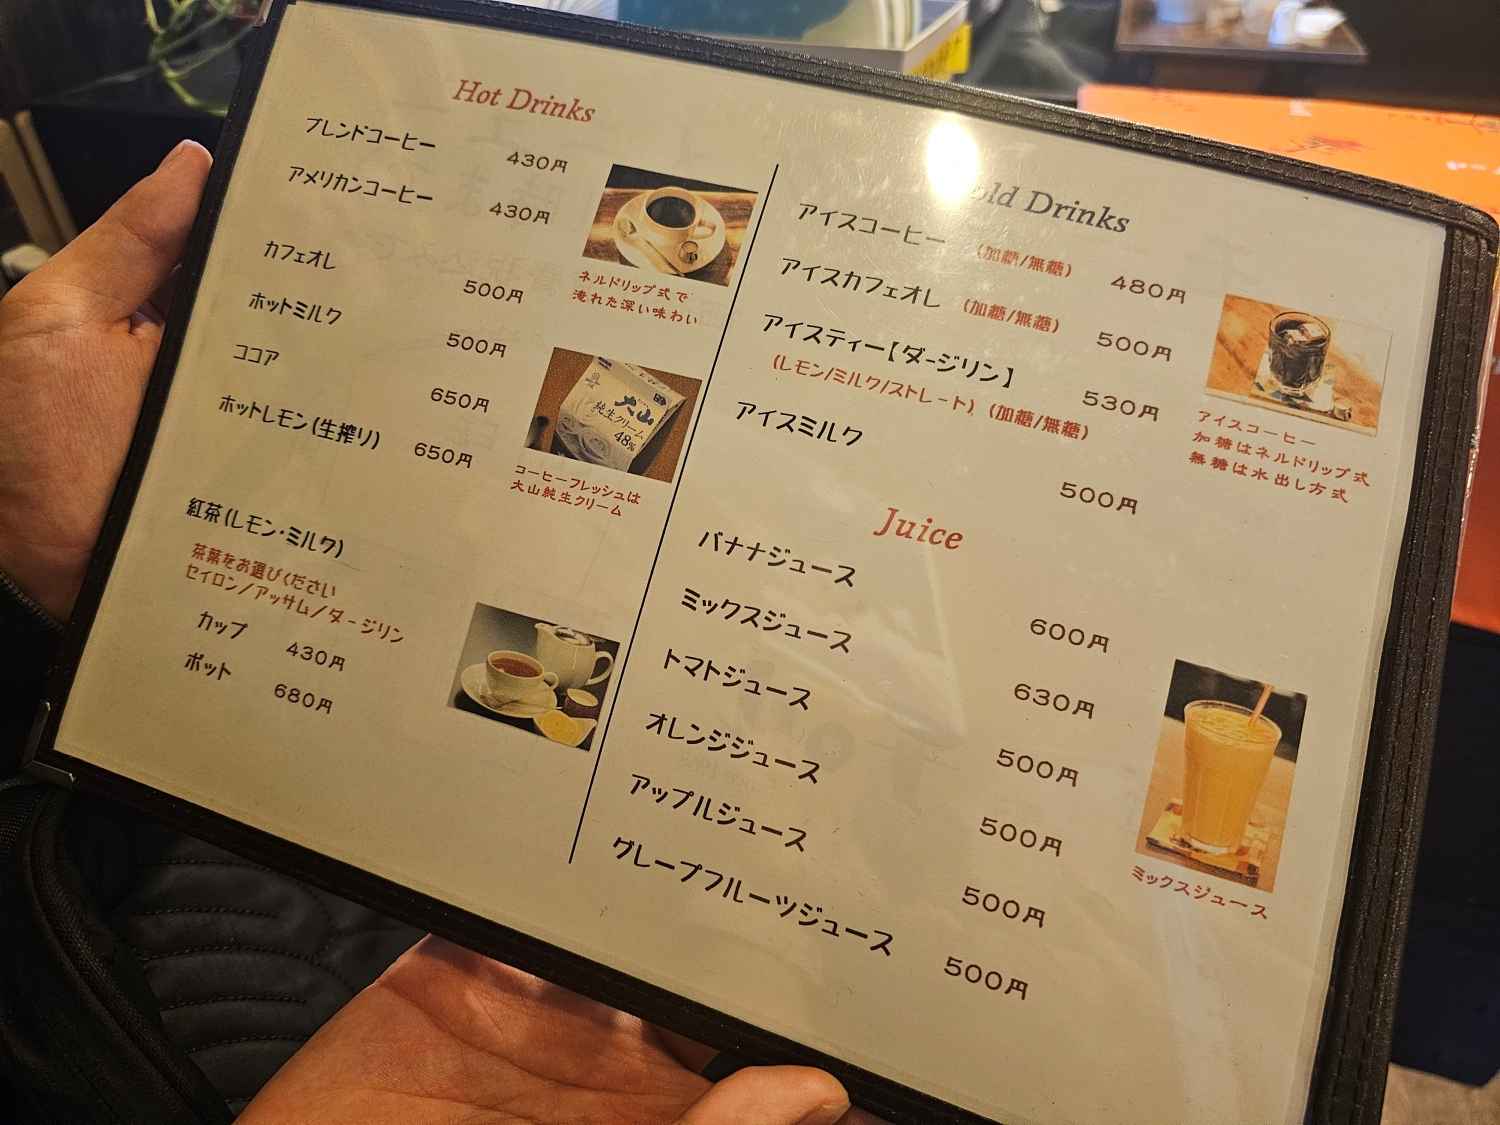 Hot Drinks
ブレンドコーヒー 430円
アメリカンコーヒー 430円
ネルドリップ式で
淹れた深い味わい
カフェオレ 500円
ホットミルク 500円
ココア 650円
ホットレモン(生搾り) 650円
大山
純生クリーム
48%
コーヒーフレッシュは
大山純生クリーム
紅茶(レモン・ミルク)
茶葉をお選びください
セイロン/アッサム/ダージリン
カップ 430円
ポット 680円
old Drinks
アイスコーヒー (加糖/無糖) 480円
アイスカフェオレ (加糖/無糖) 500円
アイスティー【ダージリン】 530円
(レモン/ミルク/ストレート) (加糖/無糖)
アイスミルク 500円
アイスコーヒー
加糖はネルドリップ式
無糖は水出し方式
Juice
バナナジュース 600円
ミックスジュース 630円
トマトジュース 500円
オレンジジュース 500円
アップルジュース 500円
グレープフルーツジュース 500円
ミックスジュース